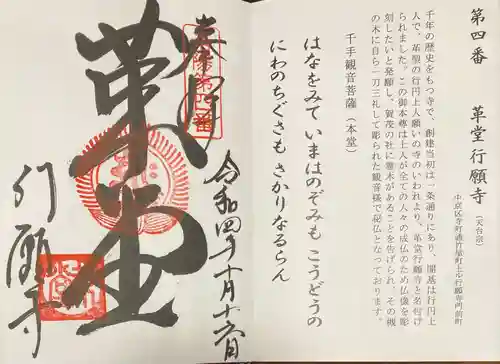 第四番 革堂行願寺 (天台宗)
中京区寺町通竹屋町上ル行願寺門前町
千年の歴史をもつ寺で、創建当初は一条通りにあり、開基は行円上
人で、革聖の行円上人願いの寺のいわれより、革堂行願寺と名付け
られました。この御本尊は上人が全ての人々の成仏のため仏像を彫
刻したいと発願し、賀茂の社に霊木があることを告げられ、その槻
の木に自ら一刀三礼して彫られた観音様で秘仏となっております。
千手観音菩薩(本堂)
はなをみて いまはのぞみも こうどうの
にわのちぐさも さかりなるらん
奉拝
革堂
令和四年十月十六日
行願寺